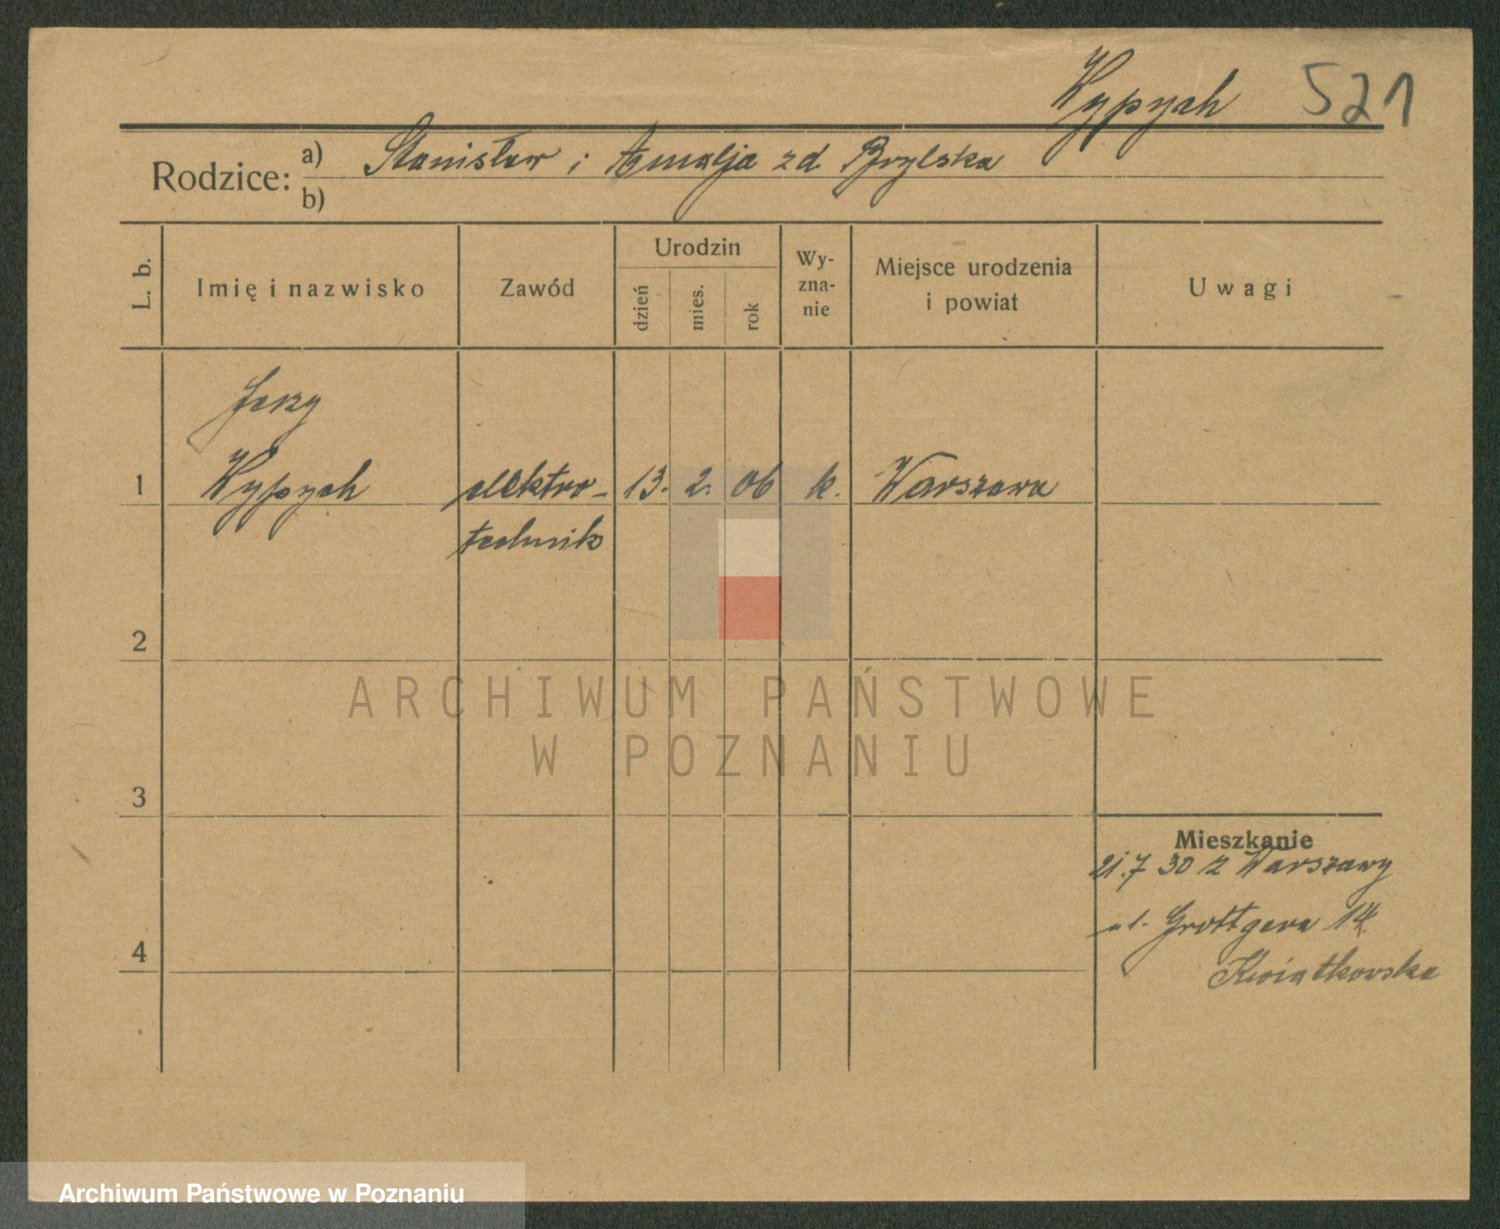 Wypych 521
Rodzice: a) Stanisław i Amalja zd Brylska
b)
L. b. Imię i nazwisko Zawód Urodzin dzień mies. rok Wy-zna-nie Miejsce urodzenia i powiat Uwagi
Jerzy
1 Wypych elektro- 13. 2. 06 k. Warszawa
technik
2
ARCHIWUM PAŃSTWOWE
W POZNANIU
3
Mieszkanie
21.7 30 z Warszawy
ul. Grottgera 14
4
Kwiatkowska
Archiwum Państwowe w Poznaniu